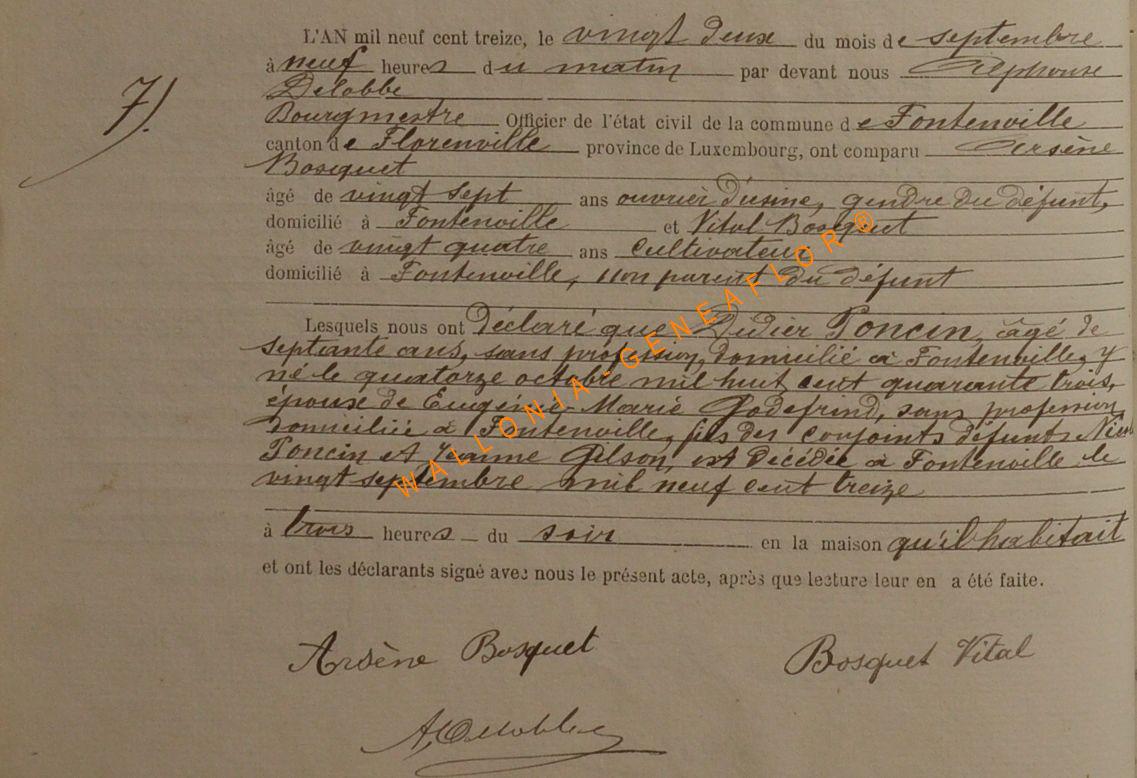 7).
L'AN mil neuf cent treize, le vingt deux du mois de septembre
à neuf heures du matin par devant nous Alphonse
Delobbe
Bourgmestre Officier de l'état civil de la commune de Fontenville
canton de Florenville province de Luxembourg, ont comparu Arsène
Bosquet
âgé de vingt sept ans ouvrier d'usine, gendre du défunt,
domicilié à Fontenville et Vital Bosquet
âgé de vingt quatre ans cultivateur
domicilié à Fontenville, non parent du défunt
Lesquels nous ont déclaré que Didier Poncin, âgé de
septante ans, sans profession, domicilié à Fontenville, y
né le quatorze octobre mil huit cent quarante trois,
époux de Eugénie-Marie Godefrind, sans profession
domiciliée à Fontenville, fils des conjoints défunts
Poncin et Jeanne Gilson, est décédé à Fontenville le
vingt septembre mil neuf cent treize
à trois heures du soir en la maison qu'il habitait
et ont les déclarants signé avec nous le présent acte, après que lecture leur en a été faite.
Arsène Bosquet
Bosquet Vital
A. Delobbe
WALLONIA - GENEAFLOR ®